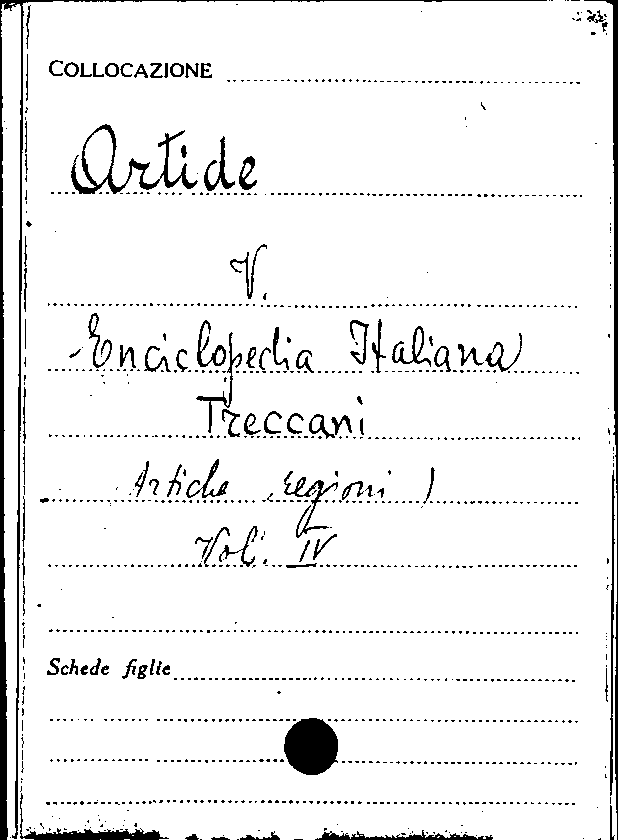 COLLOCAZIONE
Artide
V.
Enciclopedia Italiana
Treccani
Artiche, regioni)
Vol. IV
Schede figlie